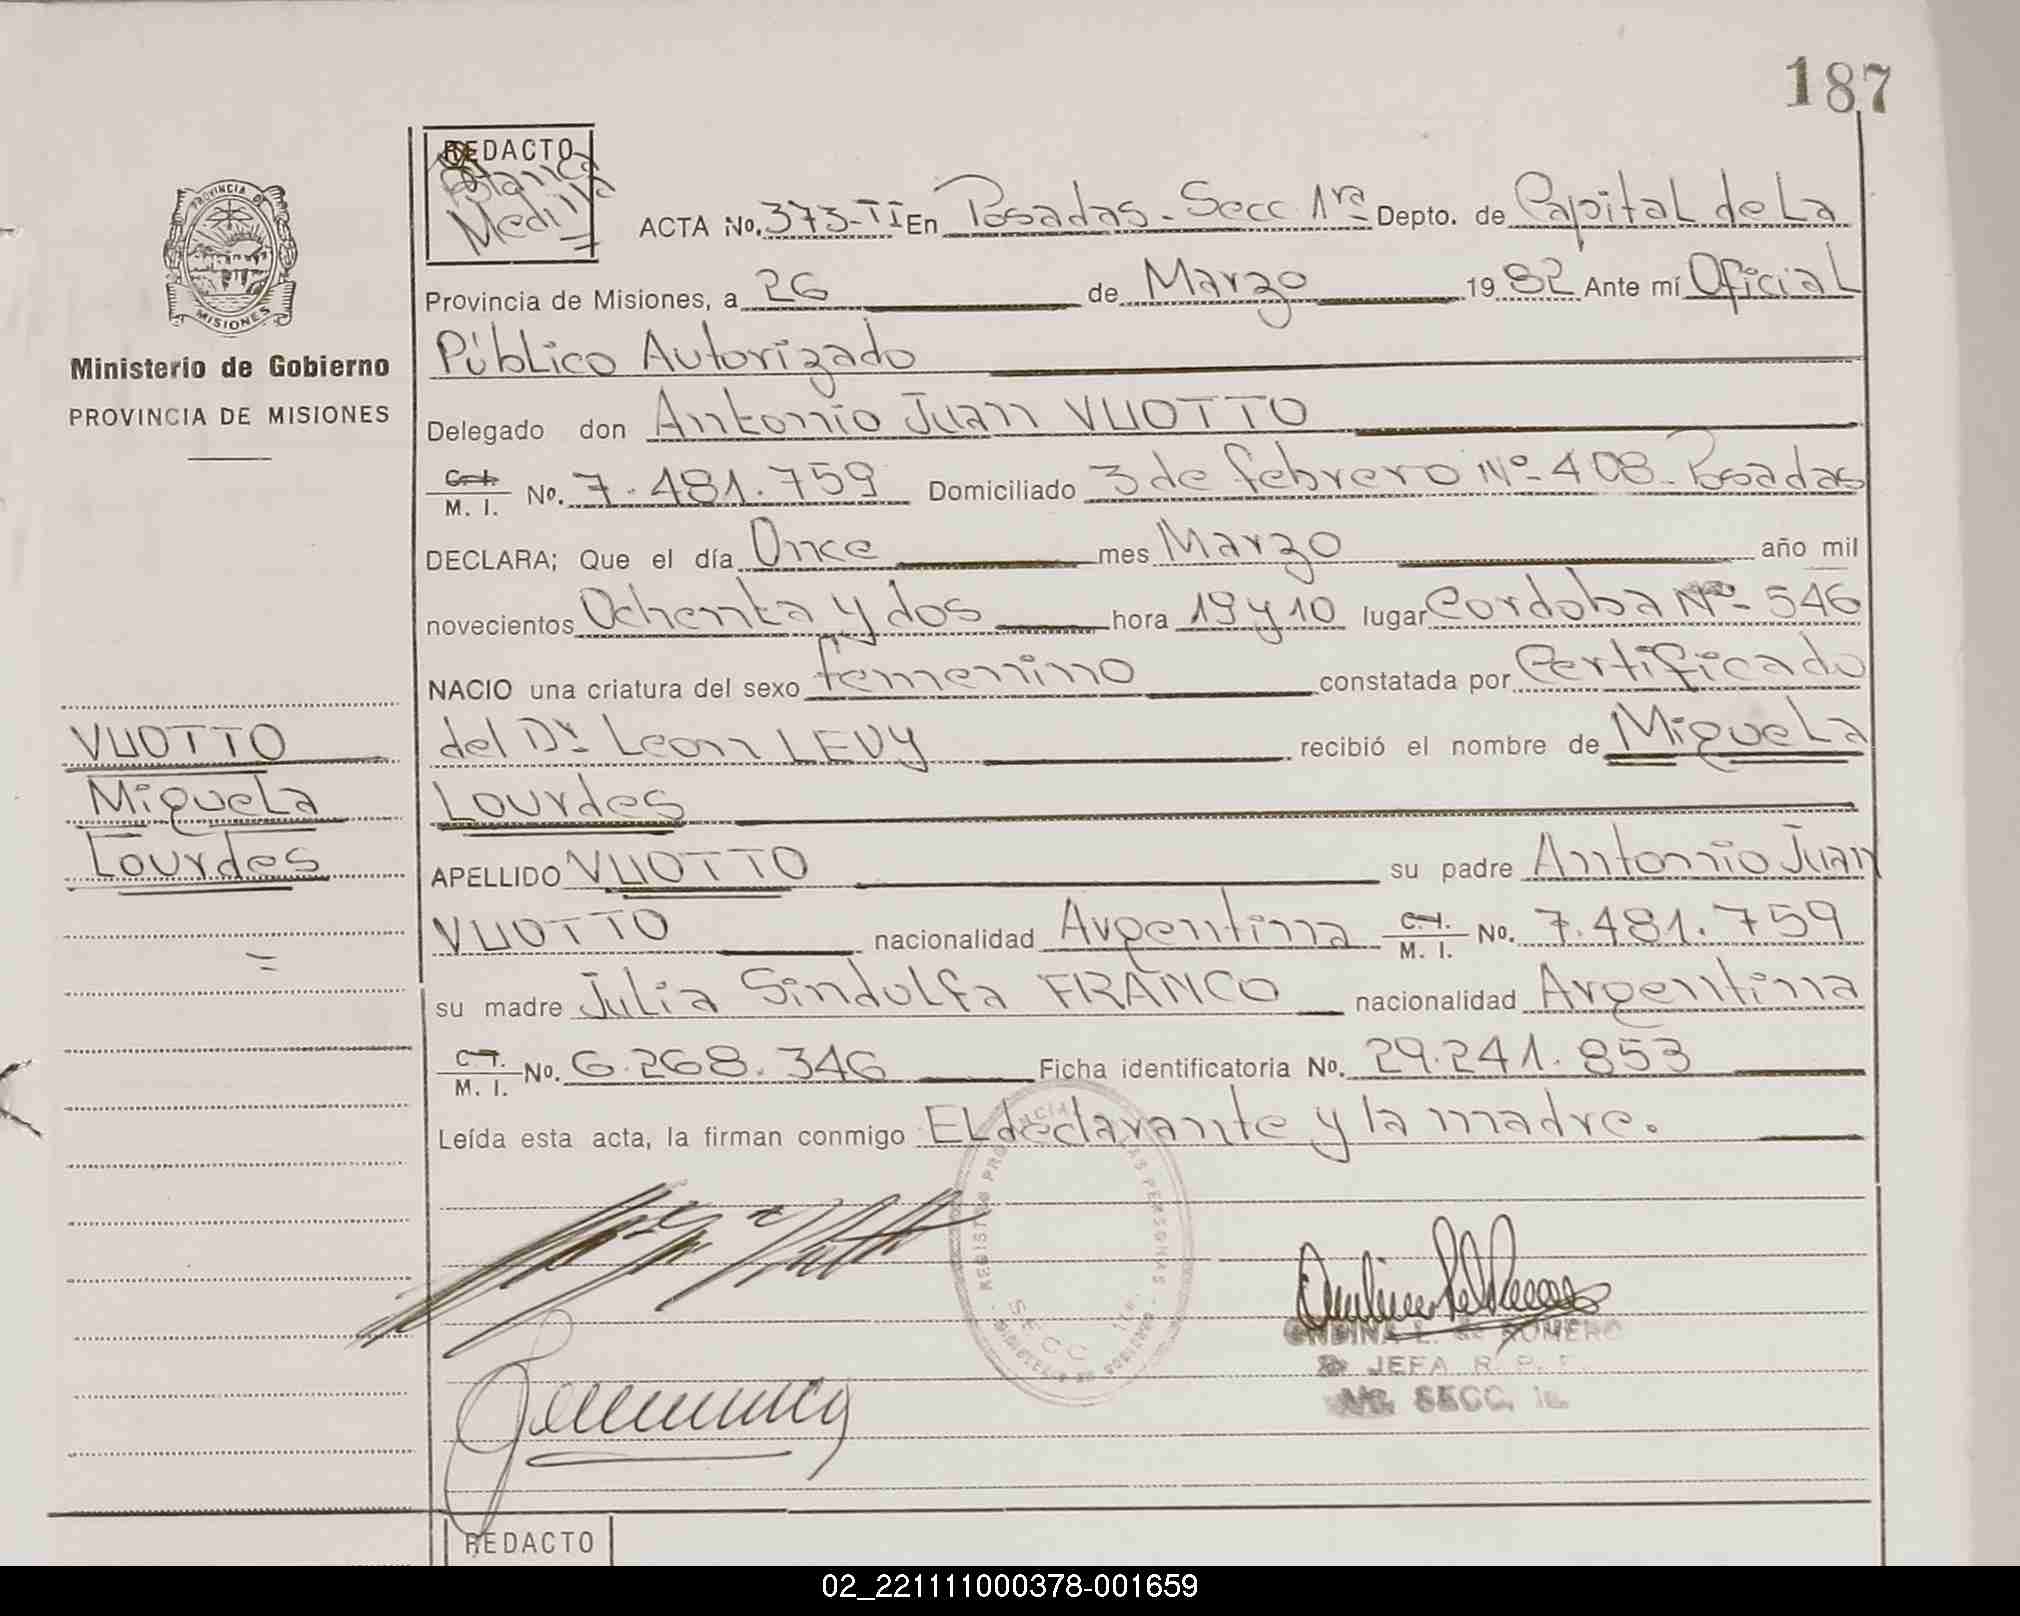 187
REDACTO
Blanca
Medina
PROVINCIA DE
MISIONES
Ministerio de Gobierno
PROVINCIA DE MISIONES
ACTA No. 373-II En Posadas - Secc 1ra Depto. de Capital de La
Provincia de Misiones, a 26 de Marzo 1982 Ante mí Oficial
Público Autorizado
Delegado don Antonio Juan VUOTTO
C.I. M. I. No. 7.481.759 Domiciliado 3 de febrero Nº 408 - Posadas
DECLARA; Que el día Once mes Marzo año mil
novecientos Ochenta y dos hora 19 y 10 lugar Cordoba Nº - 546
NACIO una criatura del sexo femenino constatada por Certificado
del Dr. Leon LEVY recibió el nombre de Miguela
Lourdes
APELLIDO VUOTTO su padre Antonio Juan
VUOTTO nacionalidad Argentina C.I. M. I. No. 7.481.759
su madre Julia Sindulfa FRANCO nacionalidad Argentina
C.I. M. I. No. 6.268.346 Ficha identificatoria No. 29.241.853
Leída esta acta, la firman conmigo El declarante y la madre.
VUOTTO
Miguela
Lourdes
=
REGISTRO PROVINCIAL DE LAS PERSONAS
SECC 1ra.
ONDINA L. de ROMERO
JEFA R. P. P.
SECC. 1a.
REDACTO
02_221111000378-001659